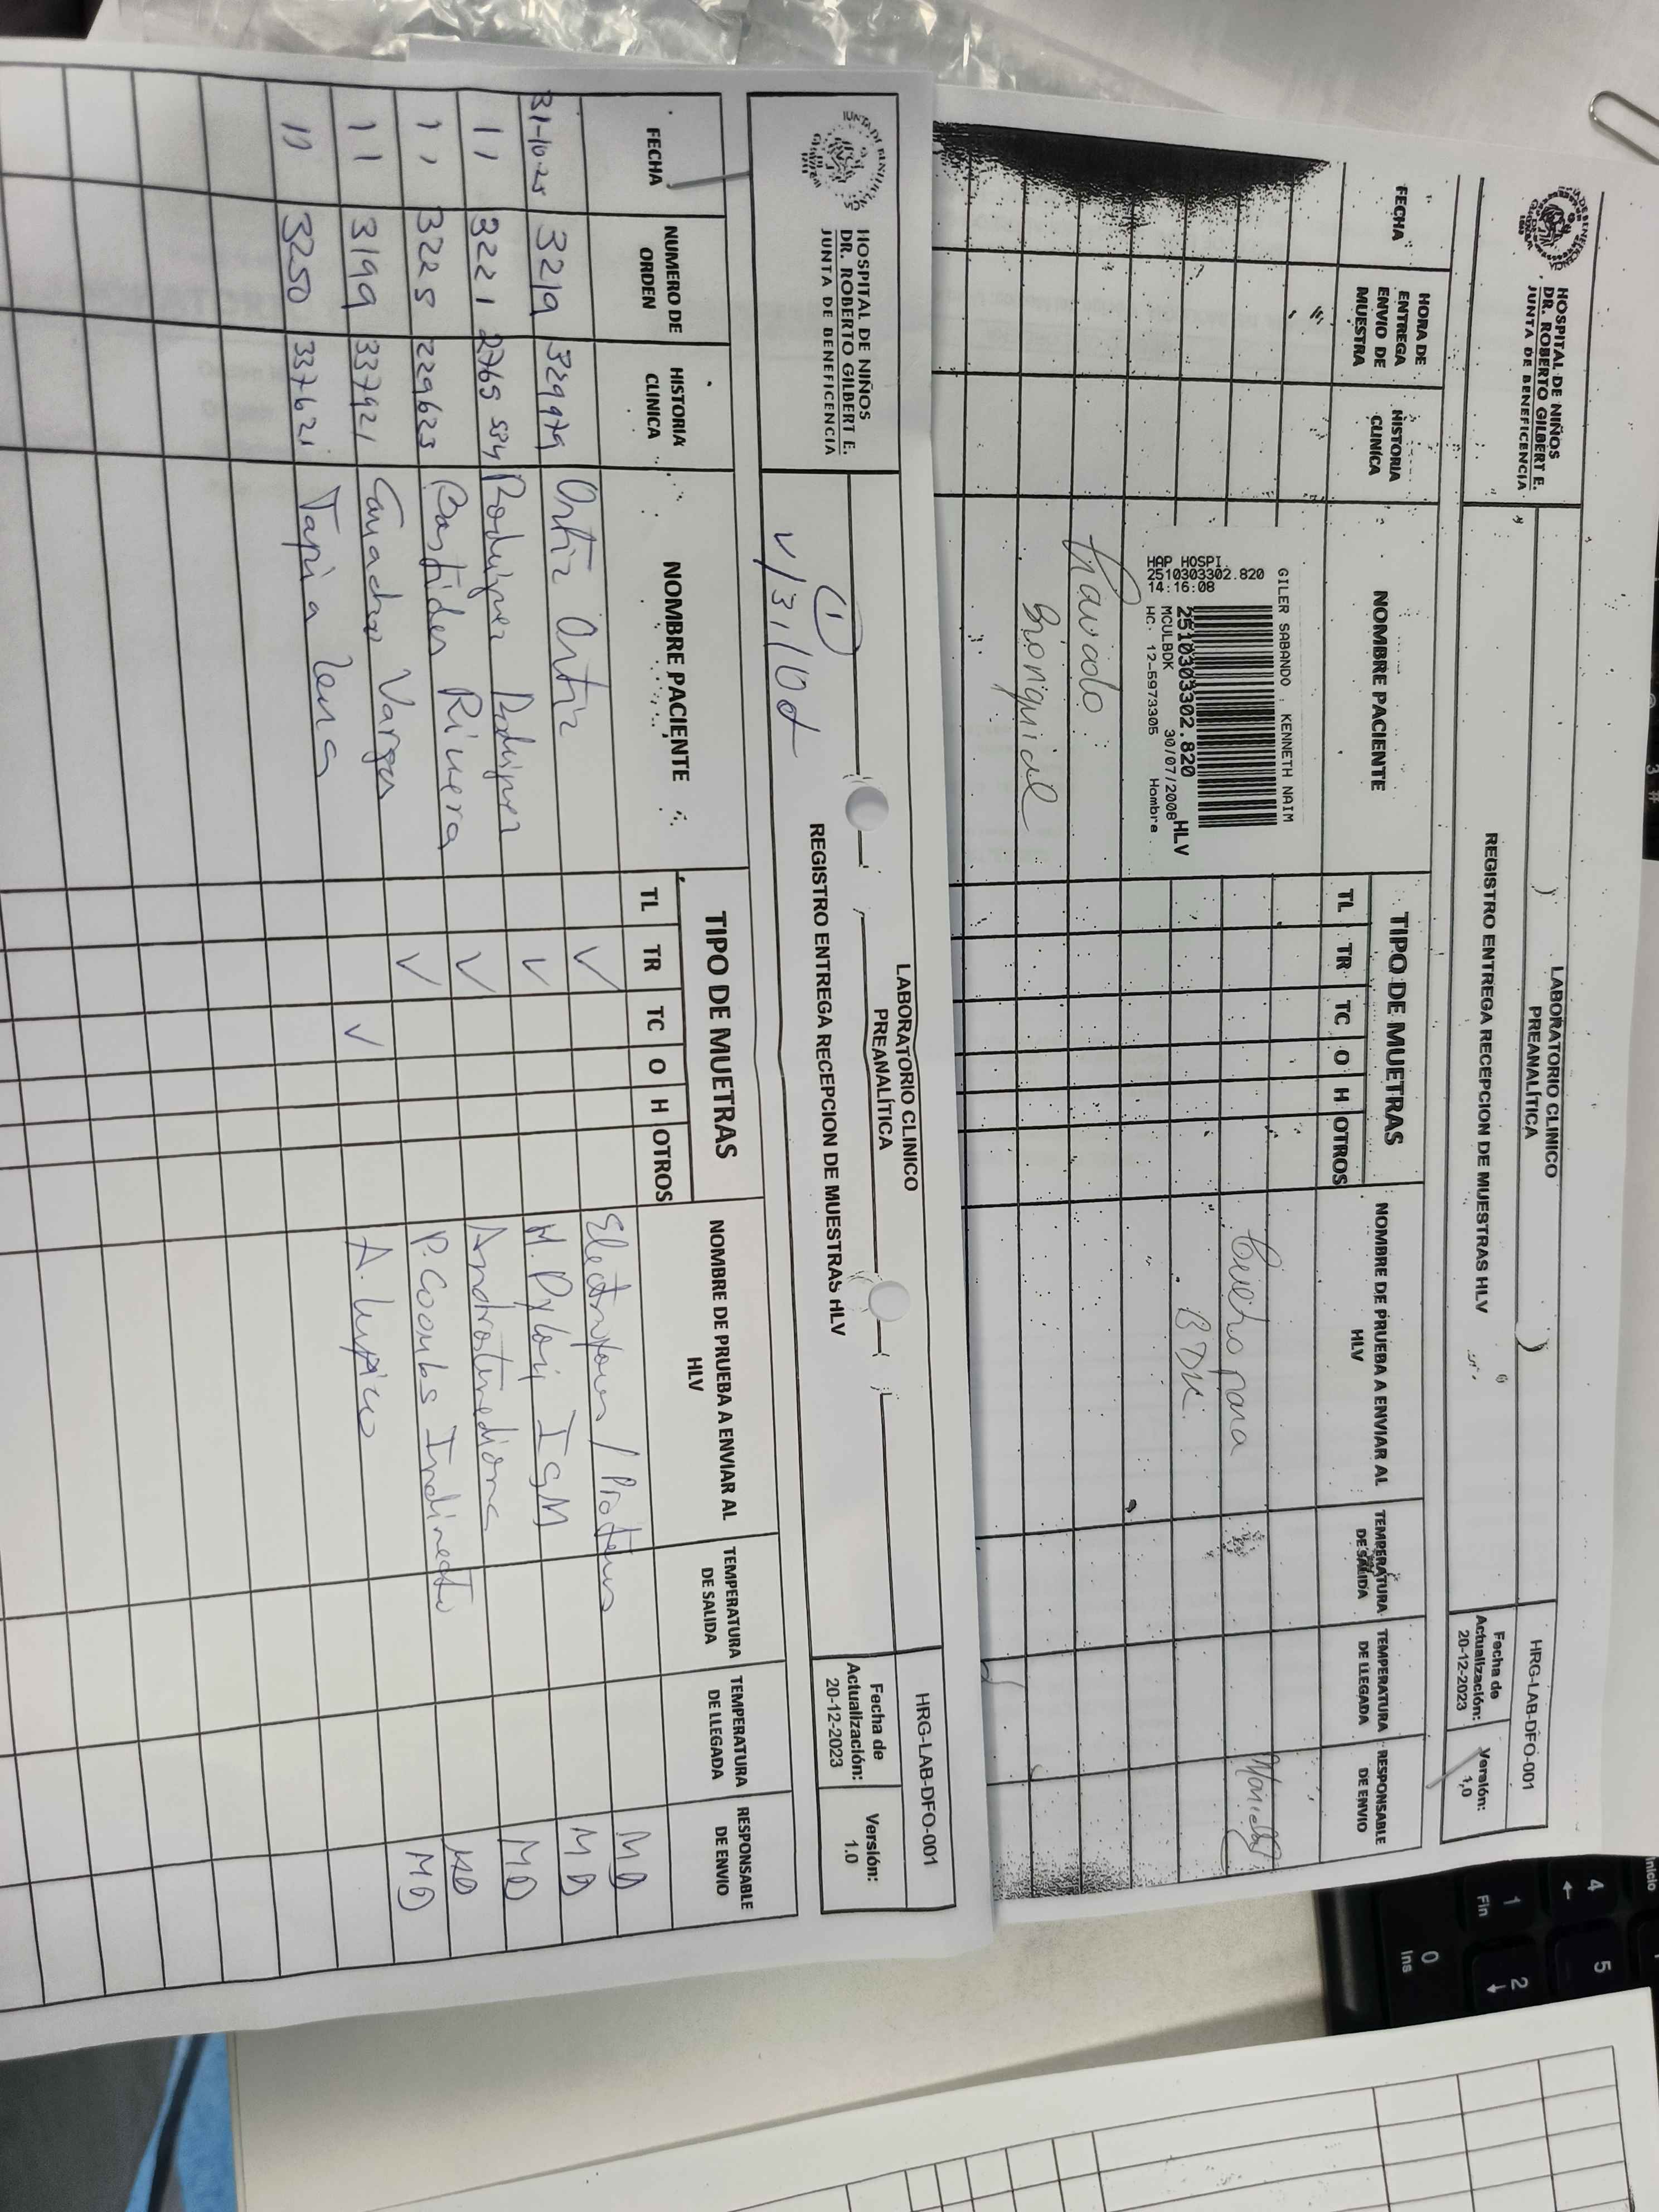 HOSPITAL DE NIÑOS
DR. ROBERTO GILBERT E.
JUNTA DE BENEFICENCIA
LABORATORIO CLINICO
PREANALÍTICA
HRG-LAB-DFO-001
REGISTRO ENTREGA RECEPCION DE MUESTRAS HLV
Fecha de
Actualización:
20-12-2023
Versión:
1,0
FECHA
HORA DE
ENTREGA
ENVIO DE
MUESTRA
HISTORIA
CLINICA
NOMBRE PACIENTE
TIPO DE MUETRAS
TL TR TC O H OTROS
NOMBRE DE PRUEBA A ENVIAR AL
HLV
TEMPERATURA
DE SALIDA
TEMPERATURA
DE LLEGADA
RESPONSABLE
DE ENVIO
GILER SABANDO , KENNETH NAIM
HLV
2510303302.820
MCULBDK 30/07/2008
HC. 12-5973305 Hombre
HAP HOSPI
2510303302.820
14:16:08
para
BDK.
lavado
Bronquial
HOSPITAL DE NIÑOS
DR. ROBERTO GILBERT E.
JUNTA DE BENEFICENCIA
LABORATORIO CLINICO
PREANALÍTICA
HRG-LAB-DFO-001
REGISTRO ENTREGA RECEPCION DE MUESTRAS HLV
Fecha de
Actualización:
20-12-2023
Versión:
1.0
(1)
V/31/Oct
FECHA
NUMERO DE
ORDEN
HISTORIA
CLINICA
NOMBRE PACIENTE
TIPO DE MUETRAS
TL TR TC O H OTROS
NOMBRE DE PRUEBA A ENVIAR AL
HLV
TEMPERATURA
DE SALIDA
TEMPERATURA
DE LLEGADA
RESPONSABLE
DE ENVIO
31-10-25 3219 329979 Ortiz Ortiz ✓ MD
11 3221 2765 Rodriguez Rodriguez ✓ H. Pylori IGM MD
11 3225 229623 Bastidas Rivera ✓ Androstenediona MD
11 3199 337921 Vargas ✓ P. Coombs Indirecto MD
11 3250 337621 Tapia ✓ A. Lupico MD
4
5
1
Fin
2
0
Ins
Inicio
3
#